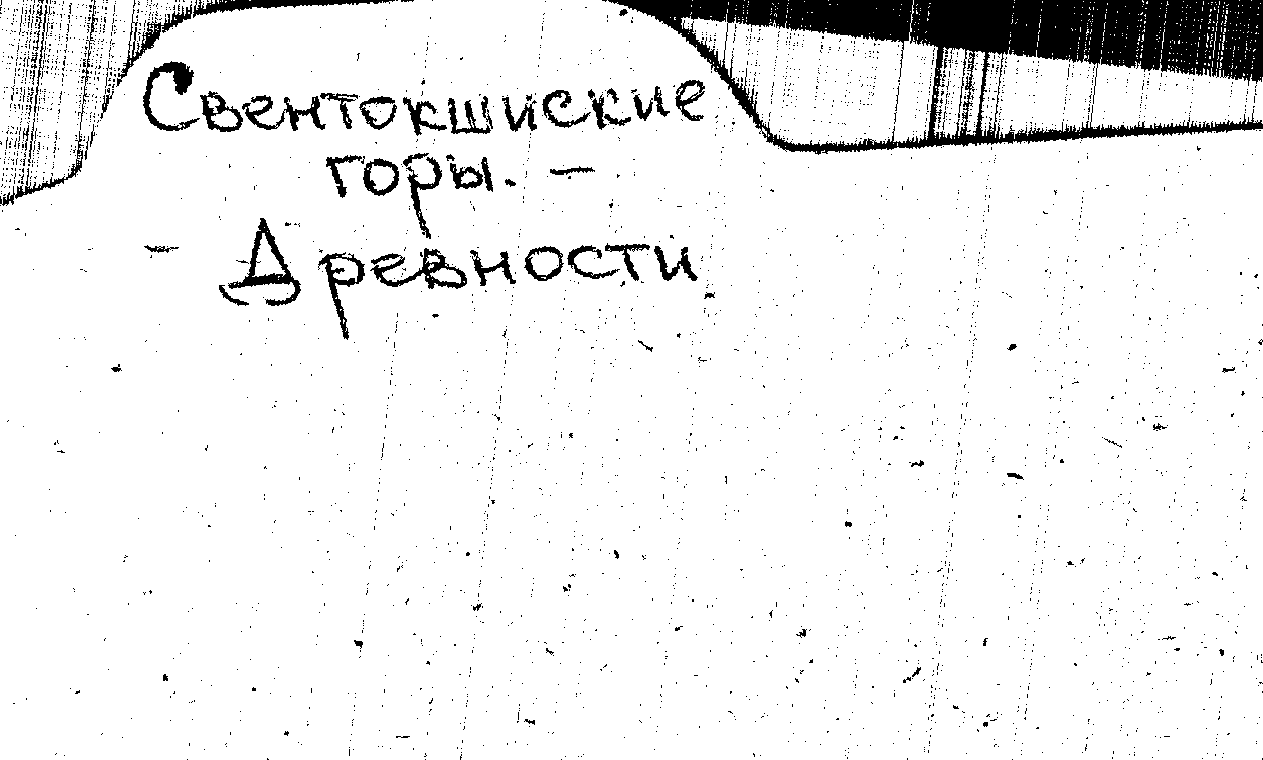 Свентокшиские
горы. —
- Древности